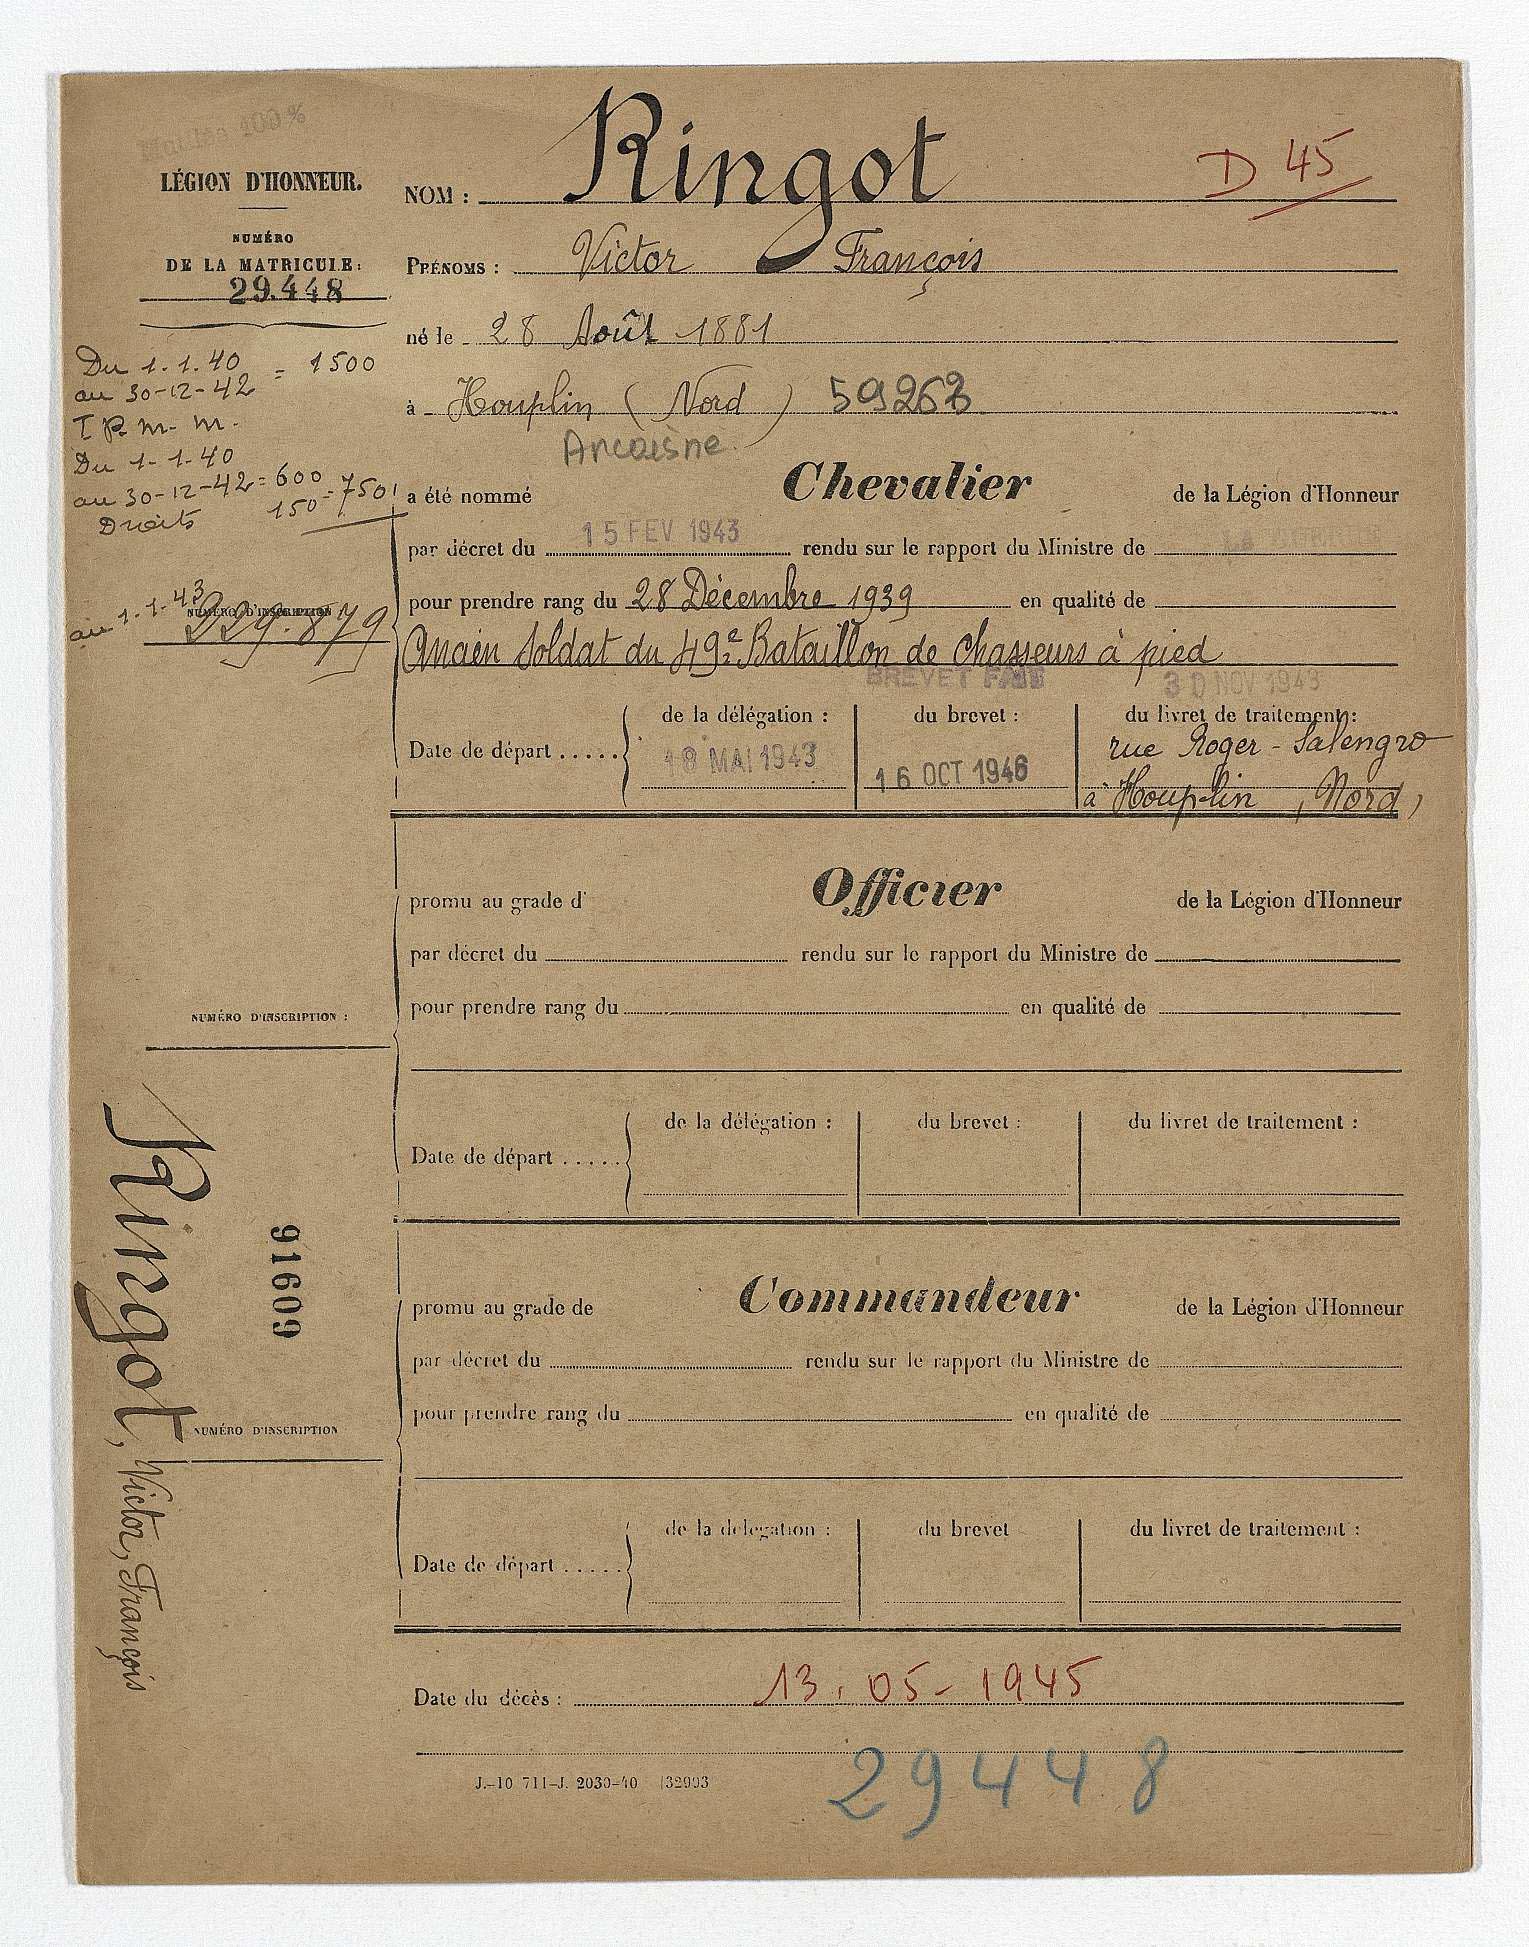 Mutilé 100 %
LÉGION D'HONNEUR.
NUMÉRO
DE LA MATRICULE:
29.448
Du 1.1.40
au 30-12-42 = 1500
T P. m. m.
Du 1-1-40
au 30-12-42 = 600
150 = 750
Droits
au 1-1-43
NUMÉRO D'INSCRIPTION
229.879
NOM : Ringot
D 45
PRÉNOMS : Victor François
né le 28 Août 1881
à Houplin (Nord) 59262
Ancoisne
a été nommé Chevalier de la Légion d'Honneur
par décret du 15 FEV 1943 rendu sur le rapport du Ministre de LA GUERRE
pour prendre rang du 28 Décembre 1939 en qualité de
Ancien Soldat du 49e Bataillon de chasseurs à pied
BREVET FAIT 30 NOV 1943
de la délégation : du brevet : du livret de traitement :
Date de départ ..... 18 MAI 1943 16 OCT 1946 rue Roger-Salengro
à Houplin (Nord)
promu au grade d' Officier de la Légion d'Honneur
par décret du rendu sur le rapport du Ministre de
pour prendre rang du en qualité de
NUMÉRO D'INSCRIPTION :
de la délégation : du brevet : du livret de traitement :
Date de départ .....
promu au grade de Commandeur de la Légion d'Honneur
par décret du rendu sur le rapport du Ministre de
pour prendre rang du en qualité de
NUMÉRO D'INSCRIPTION
de la délégation : du brevet du livret de traitement :
Date de départ .....
Ringot, Victor, François
91609
Date du décès : 13.05-1945
29448
J.-10 711-J. 2030-40 (32993